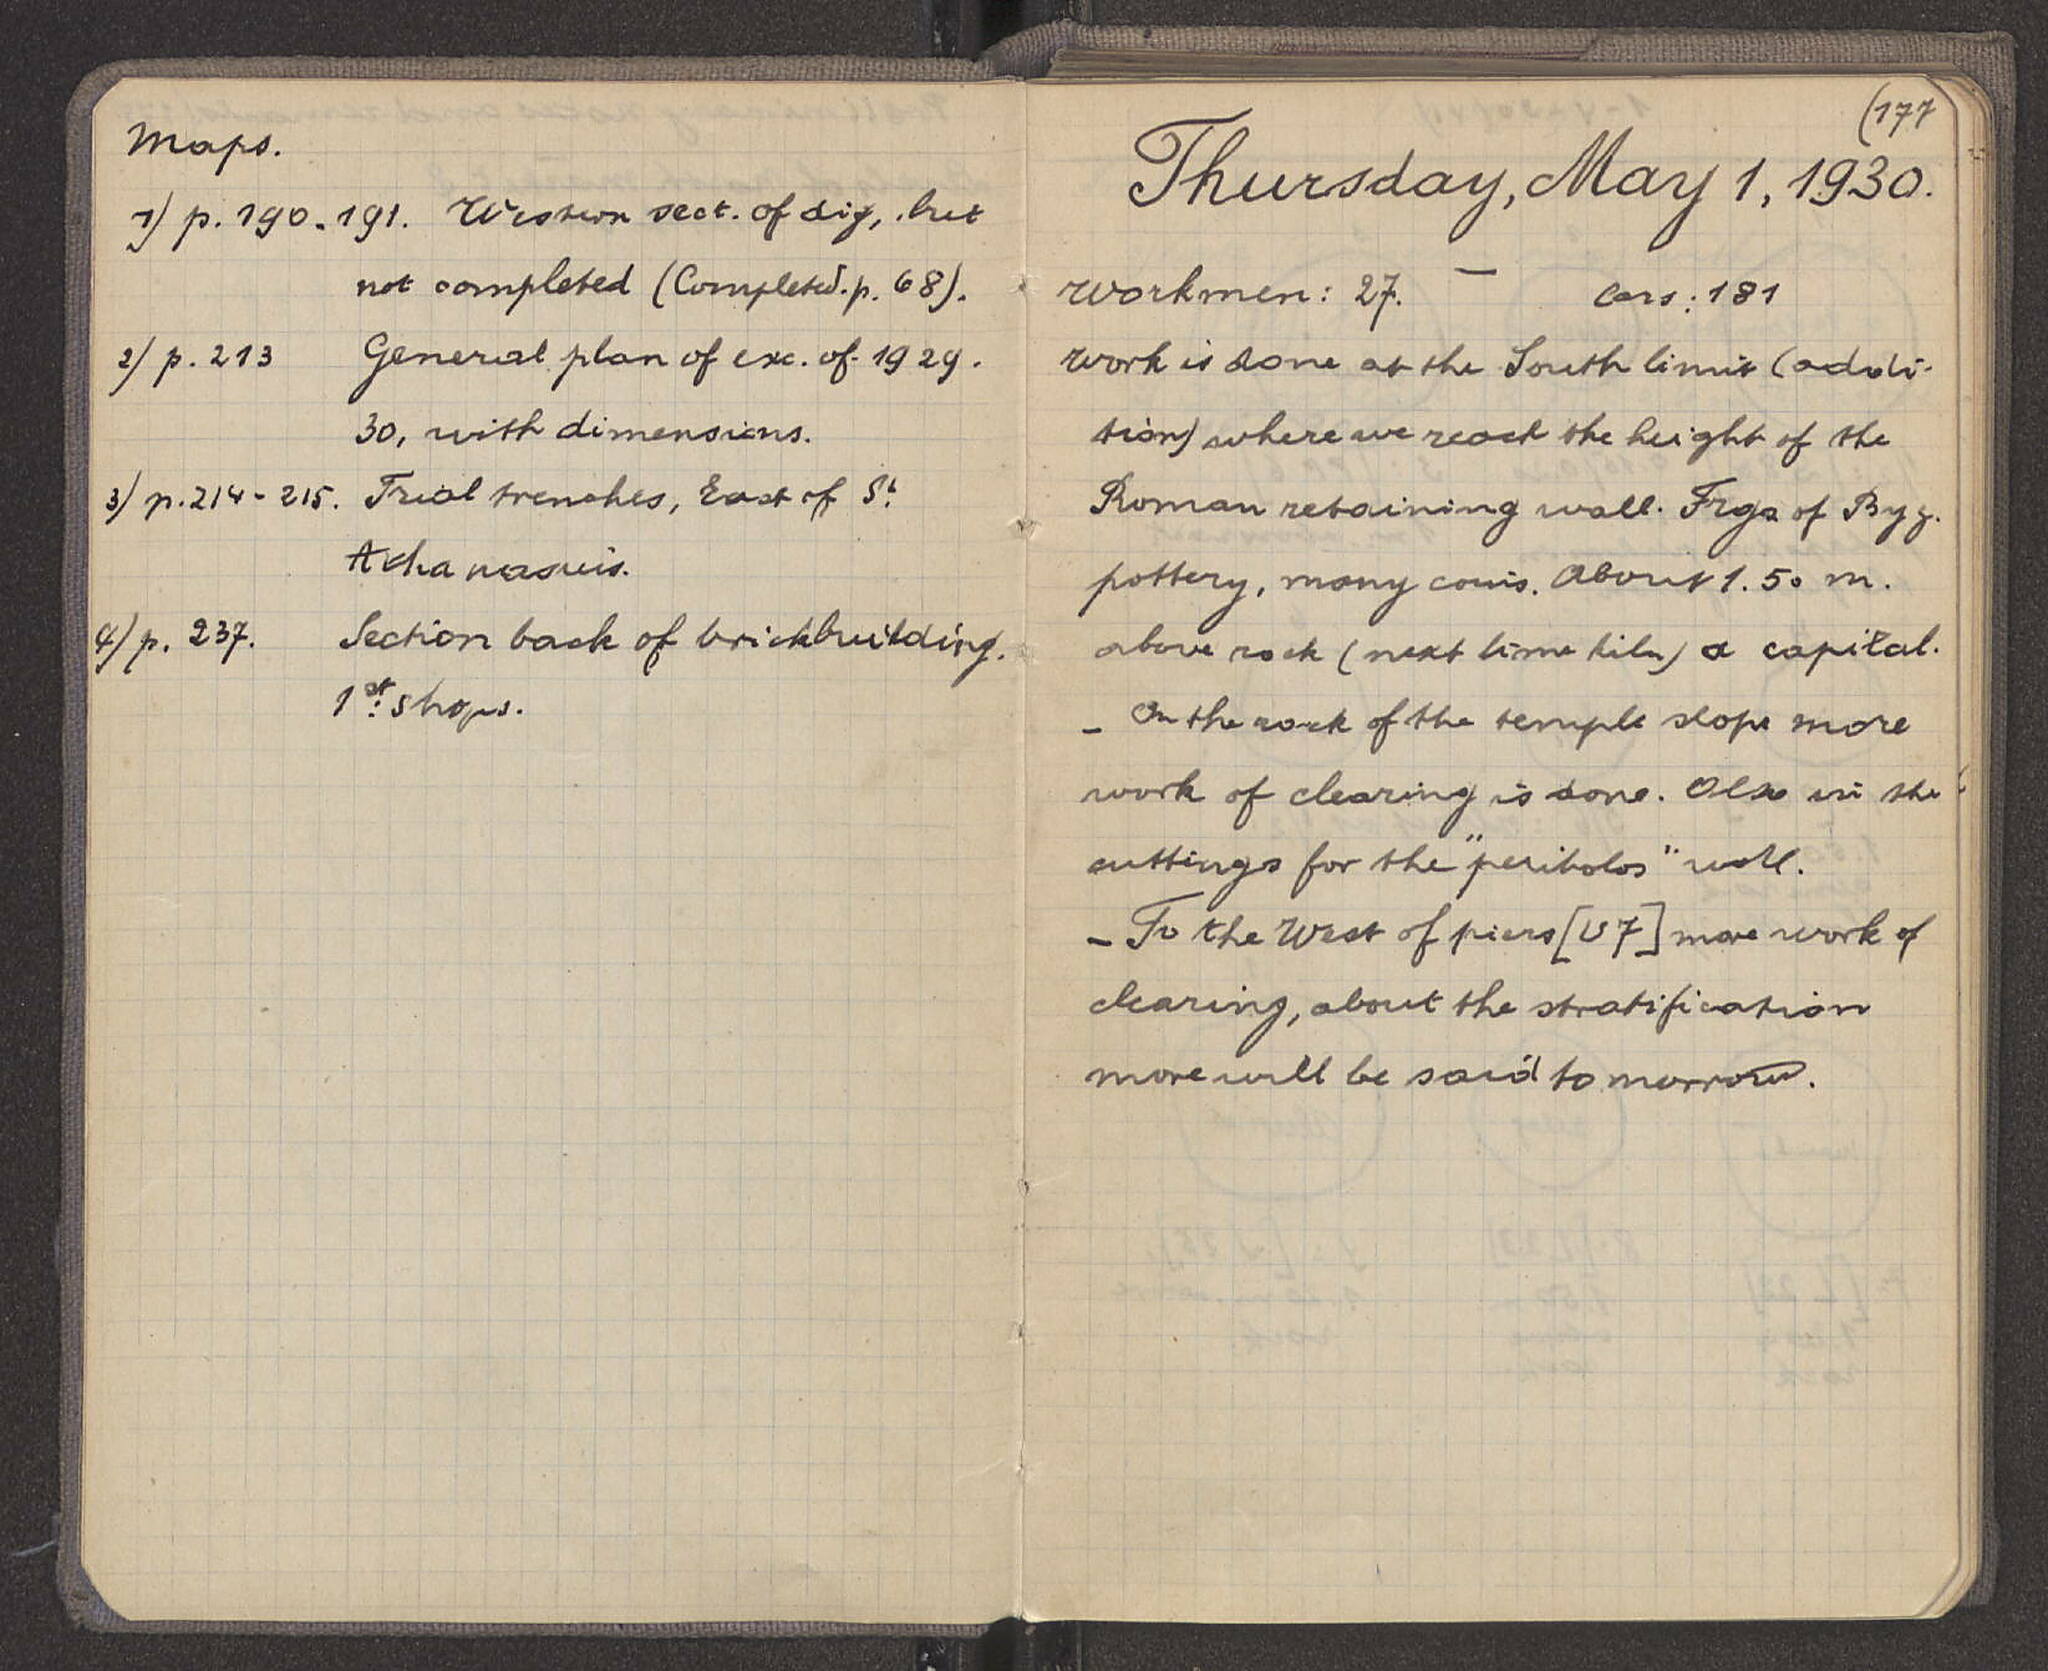 Maps.
1) p. 190-191. Western sect. of dig, but
not completed (Completed. p. 68).
2) p. 213 General plan of exc. of 1929-
30, with dimensions.
3) p. 214-215. Trial trenches, East of St.
Athanasius.
4) p. 237. Section back of brickbuilding.
1st shops.
(177
Thursday, May 1, 1930.
Workmen: 27. — Cars: 181
Work is done at the South limit (addi-
tion) where we reach the height of the
Roman retaining wall. Frgs of Byz.
pottery, many coins. About 1.50 m.
above rock (next lime kiln) a capital.
- On the rock of the temple slope more
work of clearing is done. Also in the
cuttings for the "peribolos" wall.
- To the West of piers [U7] more work of
clearing, about the stratification
more will be said to morrow.